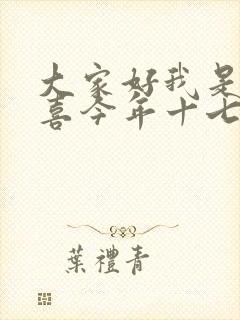 大家好我是
喜今年十七
葉禮青